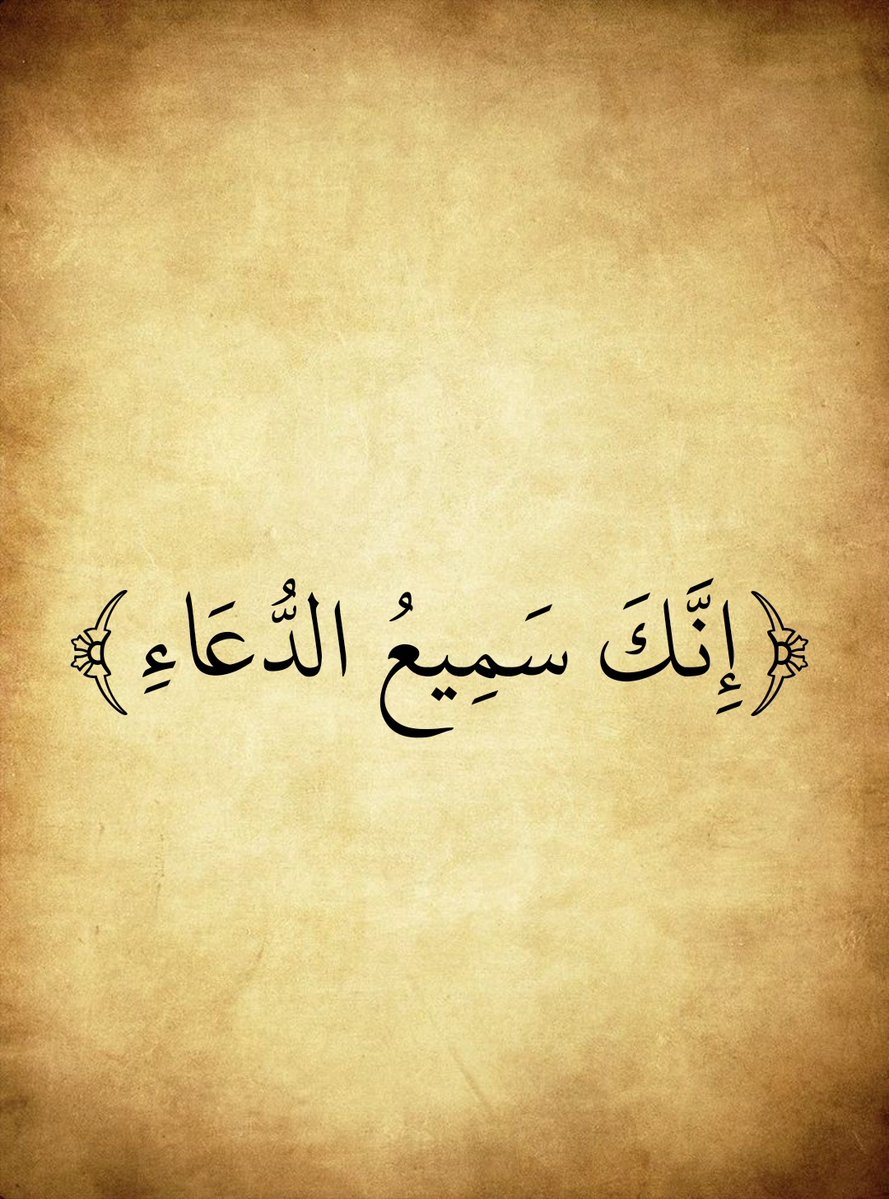 ﴿ إِنَّكَ سَمِيعُ الدُّعَاءِ ﴾